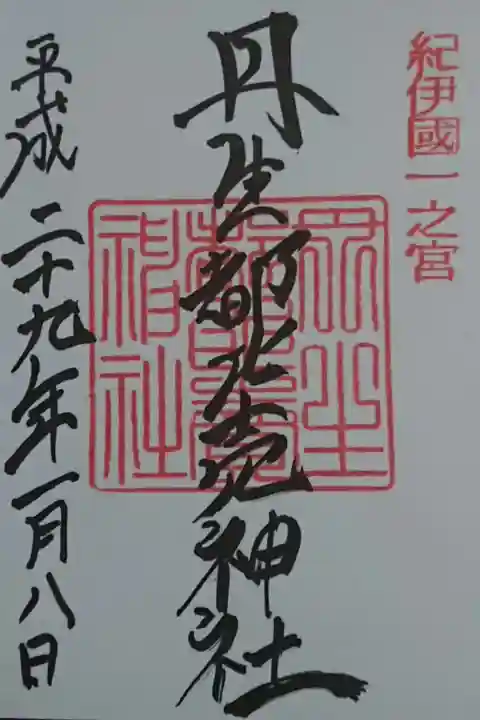 紀伊國一之宮
丹生都比売神社
丹生都比賣神社
平成二十九年一月八日